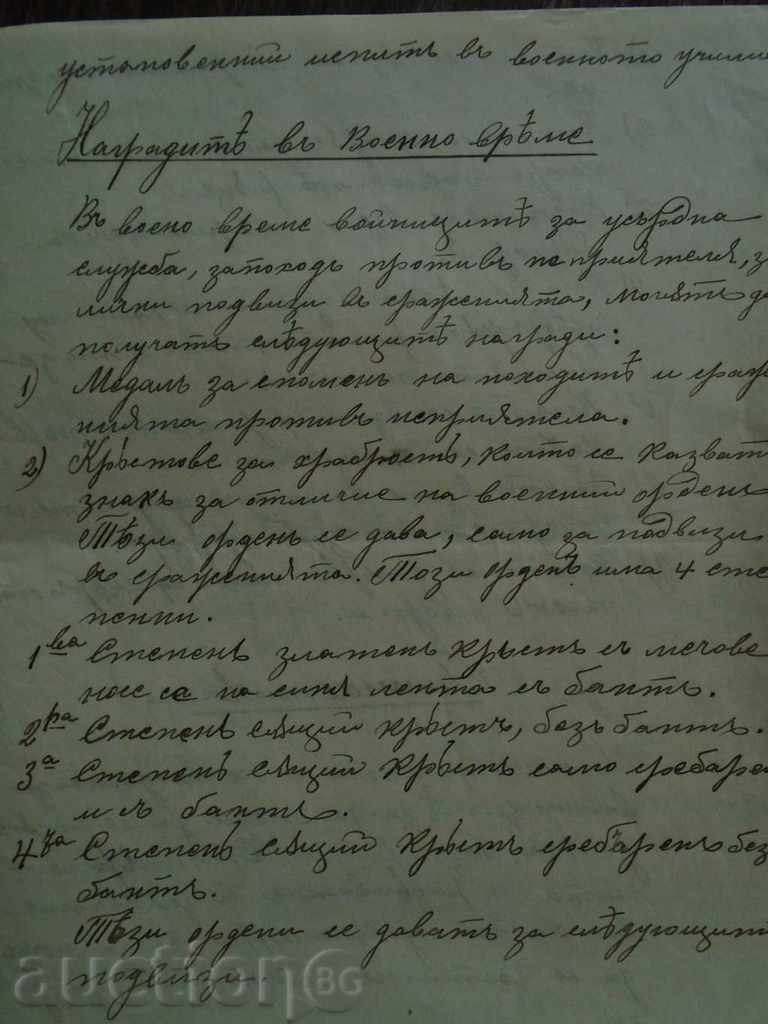 установенний испитъ въ военното учили
Наградитѣ въ Военно врѣме
Въ воено време войницитѣ за усърдна
служба, запоходъ противъ неприятеля, за
лични подвизи въ сраженията, могѫтъ да
получатъ слѣдующитѣ награди:
1) Медалъ за споменъ на походитѣ и сраже
нията противъ неприятела.
2) Кръстове за храбрость, които се казватъ
знакъ за отличие на военний орденъ
Тѣзи орденъ се дава, само за подвизи
въ сраженията. Този орденъ има 4 сте
пенни.
1ва Степенъ златенъ кръстъ съ мечове
носе се на синя лента съ бантъ.
2ра Степенъ сѫщий кръстъ, безъ бантъ.
3а Степенъ сѫщий кръстъ само сребаре
и съ бантъ.
4та Степенъ сѫщий кръстъ сребъренъ без
бантъ.
Тѣзи ордени се даватъ за слѣдующит
подвизи.
auctionBG